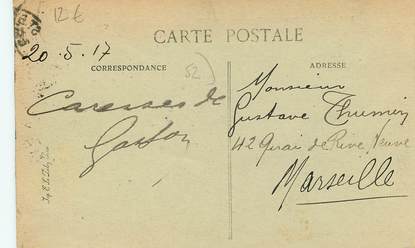 12 €
CARTE POSTALE
20.5.17
CORRESPONDANCE
ADRESSE
52
Caresses de
Gaston
Monsieur
Gustave
42 Quai de Rive Neuve
Marseille